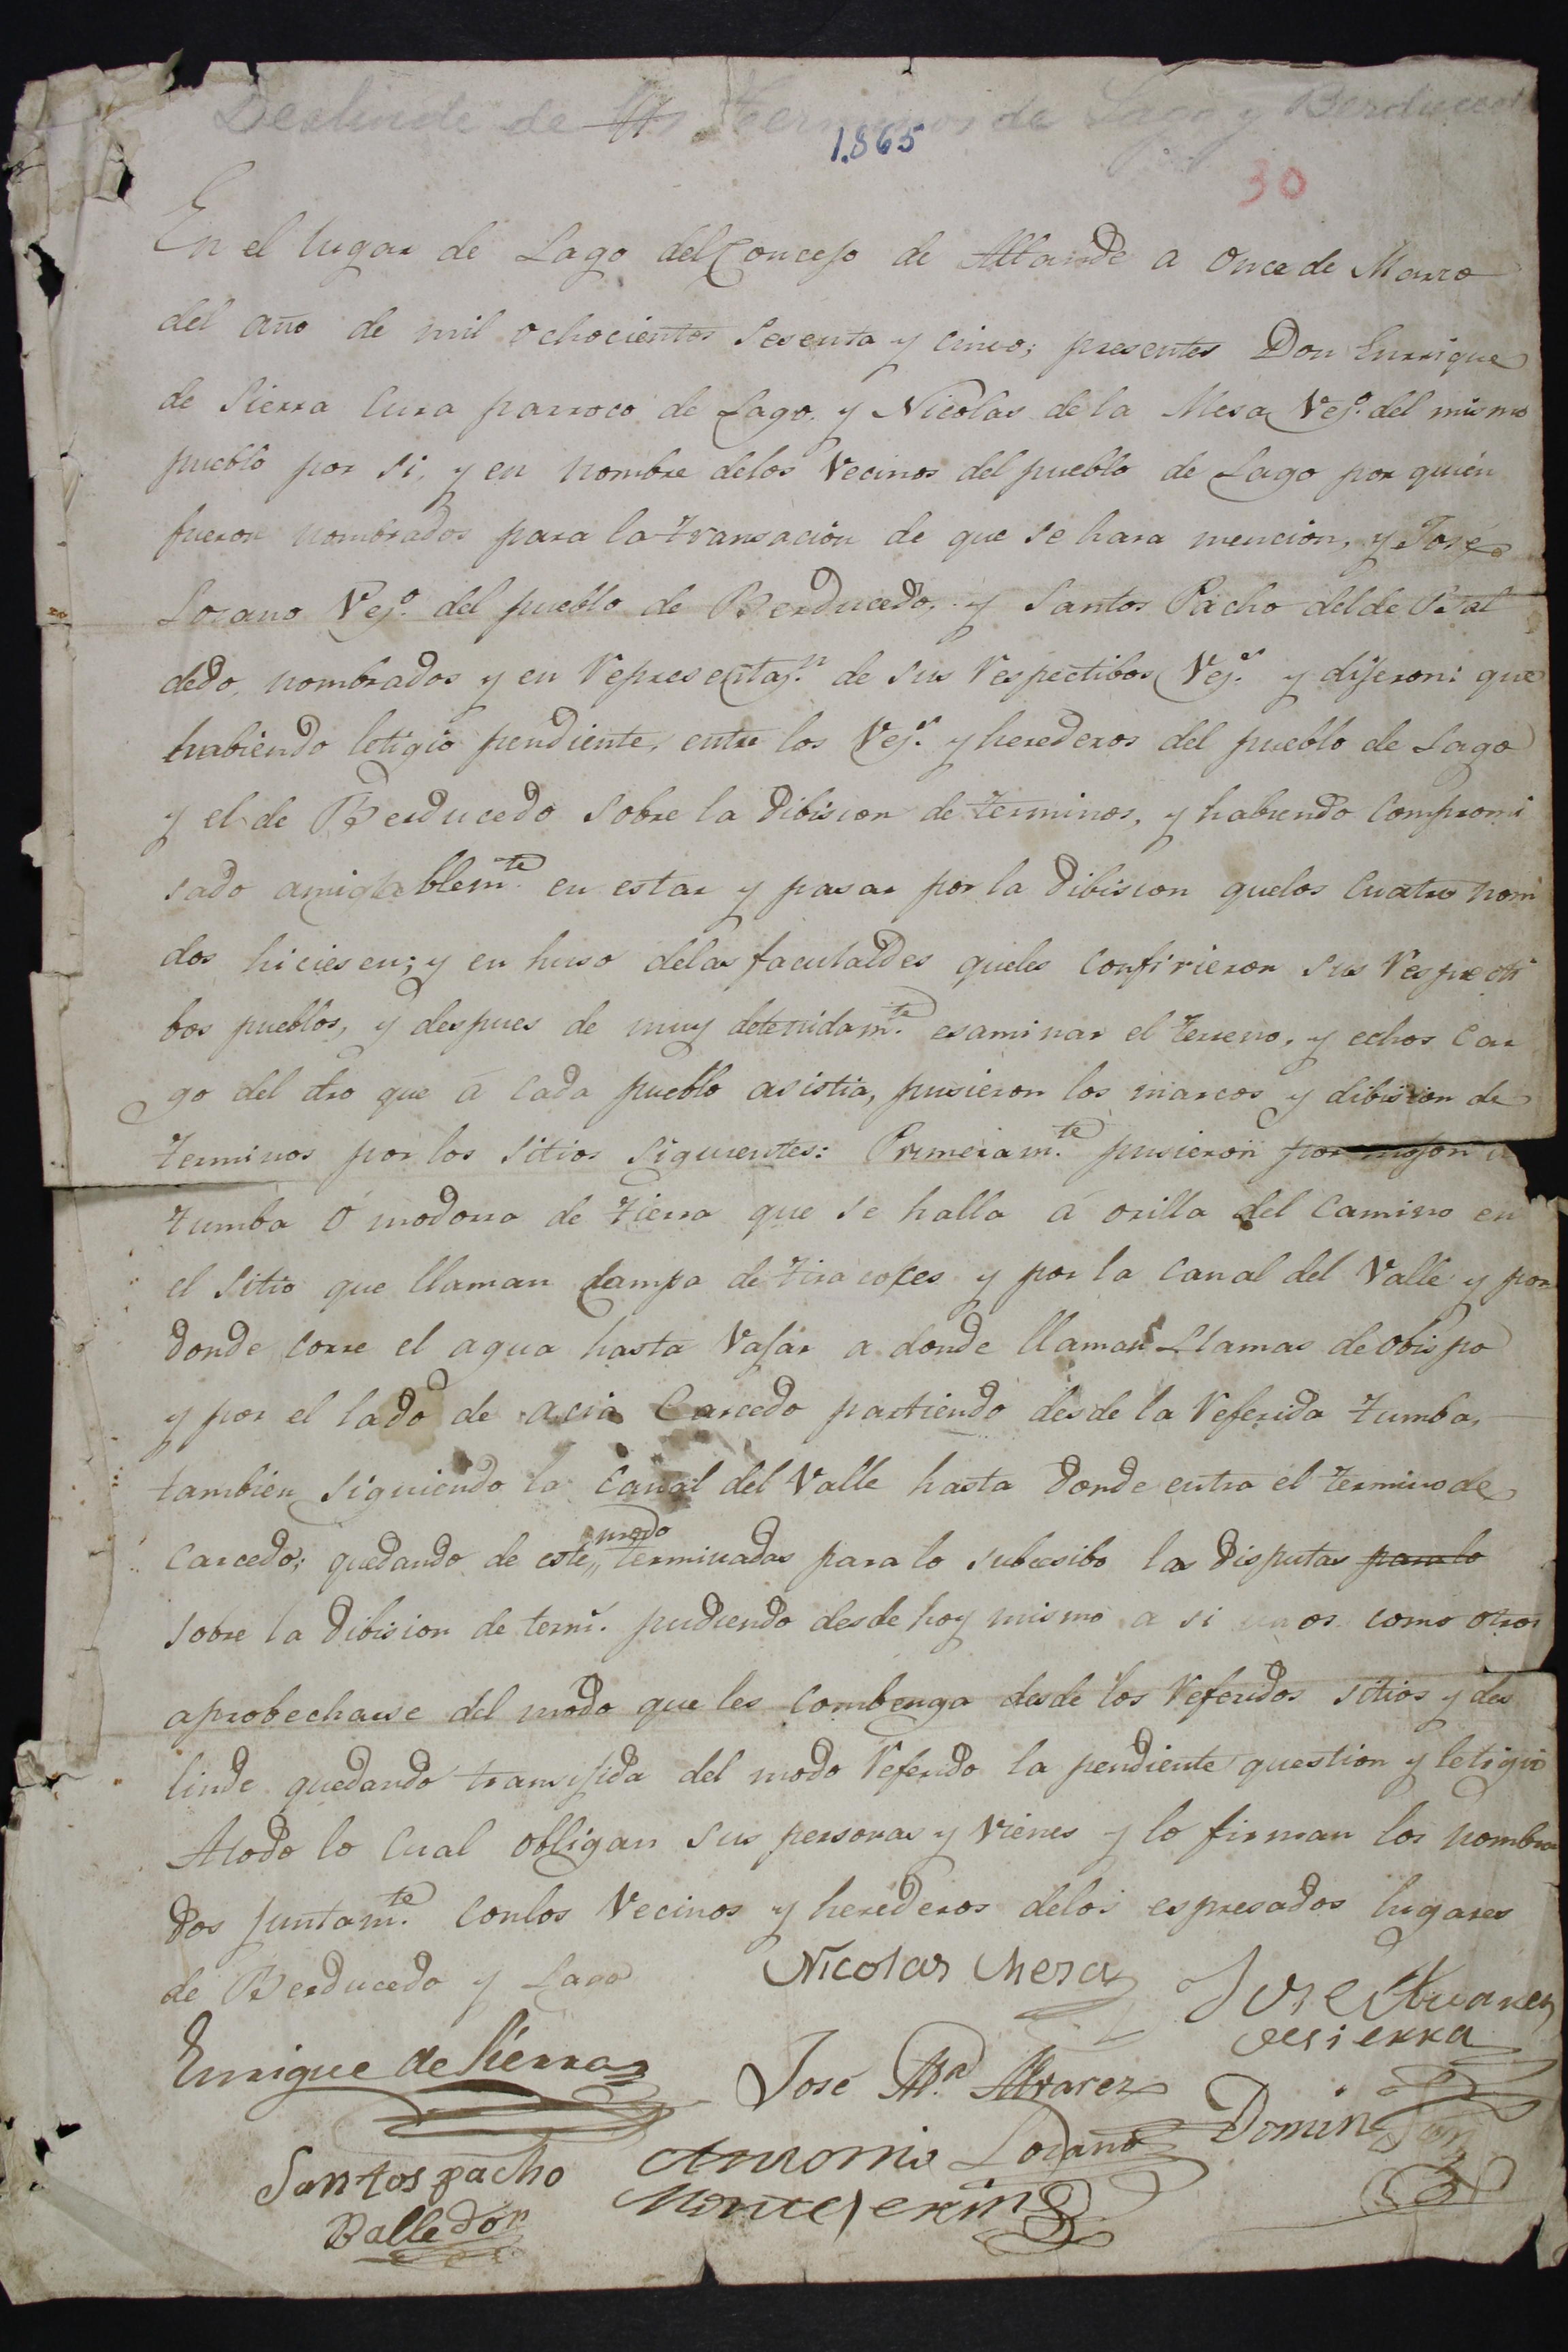 Deslinde de los Terminos de Lago y Berducedo
1.865
30
En el lugar de Lago del Concejo de Allande a Once de Marzo
del año de mil ochocientos sesenta y cinco; presentes Don Enrrique
de Sierra Cura parroco de Lago, y Nicolas de la Mesa Veº. del mismo
pueblo por si, y en nombre delos Vecinos del pueblo de Lago por quién
fueron nombrados para la transacion de que se hara mencion, y José
Lozano Veº. del pueblo de Berducedo, y Santos Pacho del de
dedo, nombrados y en Representaⁿ. de sus Respectibos Veˢ. y dijeron: que
habiendo letigio pendiente, entre los Veˢ. y herederos del pueblo de Lago
y el de Berducedo sobre la dibision de terminos, y habiendo Compromi
sado amigablemᵗᵉ. en estar y pasar por la dibision quelos Cuatro nom
dos hiciesen; y en huso delas facultaddes queles Confirieron sus Respecti
bos pueblos, y despues de muy detenidamᵗᵉ. esaminar el terreno, y echos Car
go del dro que á Cada pueblo asistia, pusieron los marcos y dibision de
terminos por los sitios siguientes: Primeramᵗᵉ. pusieron por mojon
tumba ó modorra de tierra que se halla á orilla del Camino en
el sitio que llaman Campa de y por la Canal del Valle y por
donde corre el agua hasta Vajar a donde llaman Llamas de obispo
y por el lado de acia Carcedo partiendo desde la Referida tumba,
tambien siguiendo la Canal del Valle hasta donde entra el termino de
Carcedo; quedando de este modo terminadas para lo subcesibo las disputas para lo
sobre la dibision de termˢ. pudiendo desde hoy mismo a si unos como otros
aprobecharse del modo que les Combenga desde los Referidos sitios y des
linde quedando transijida del modo Referido la pendiente question y letigio
Atodo lo Cual obligan sus personas y vienes y lo firman los nombra
dos juntamᵗᵉ. conlos Vecinos y herederos delos espresados lugares
de Berducedo y Lago
Nicolas Mesa
Jose Albarez
de sierra
Enrrique de Sierra
José Mª. Alvarez
Domin
Santos pacho
Balledor
Antonio Lozano
Monteserin